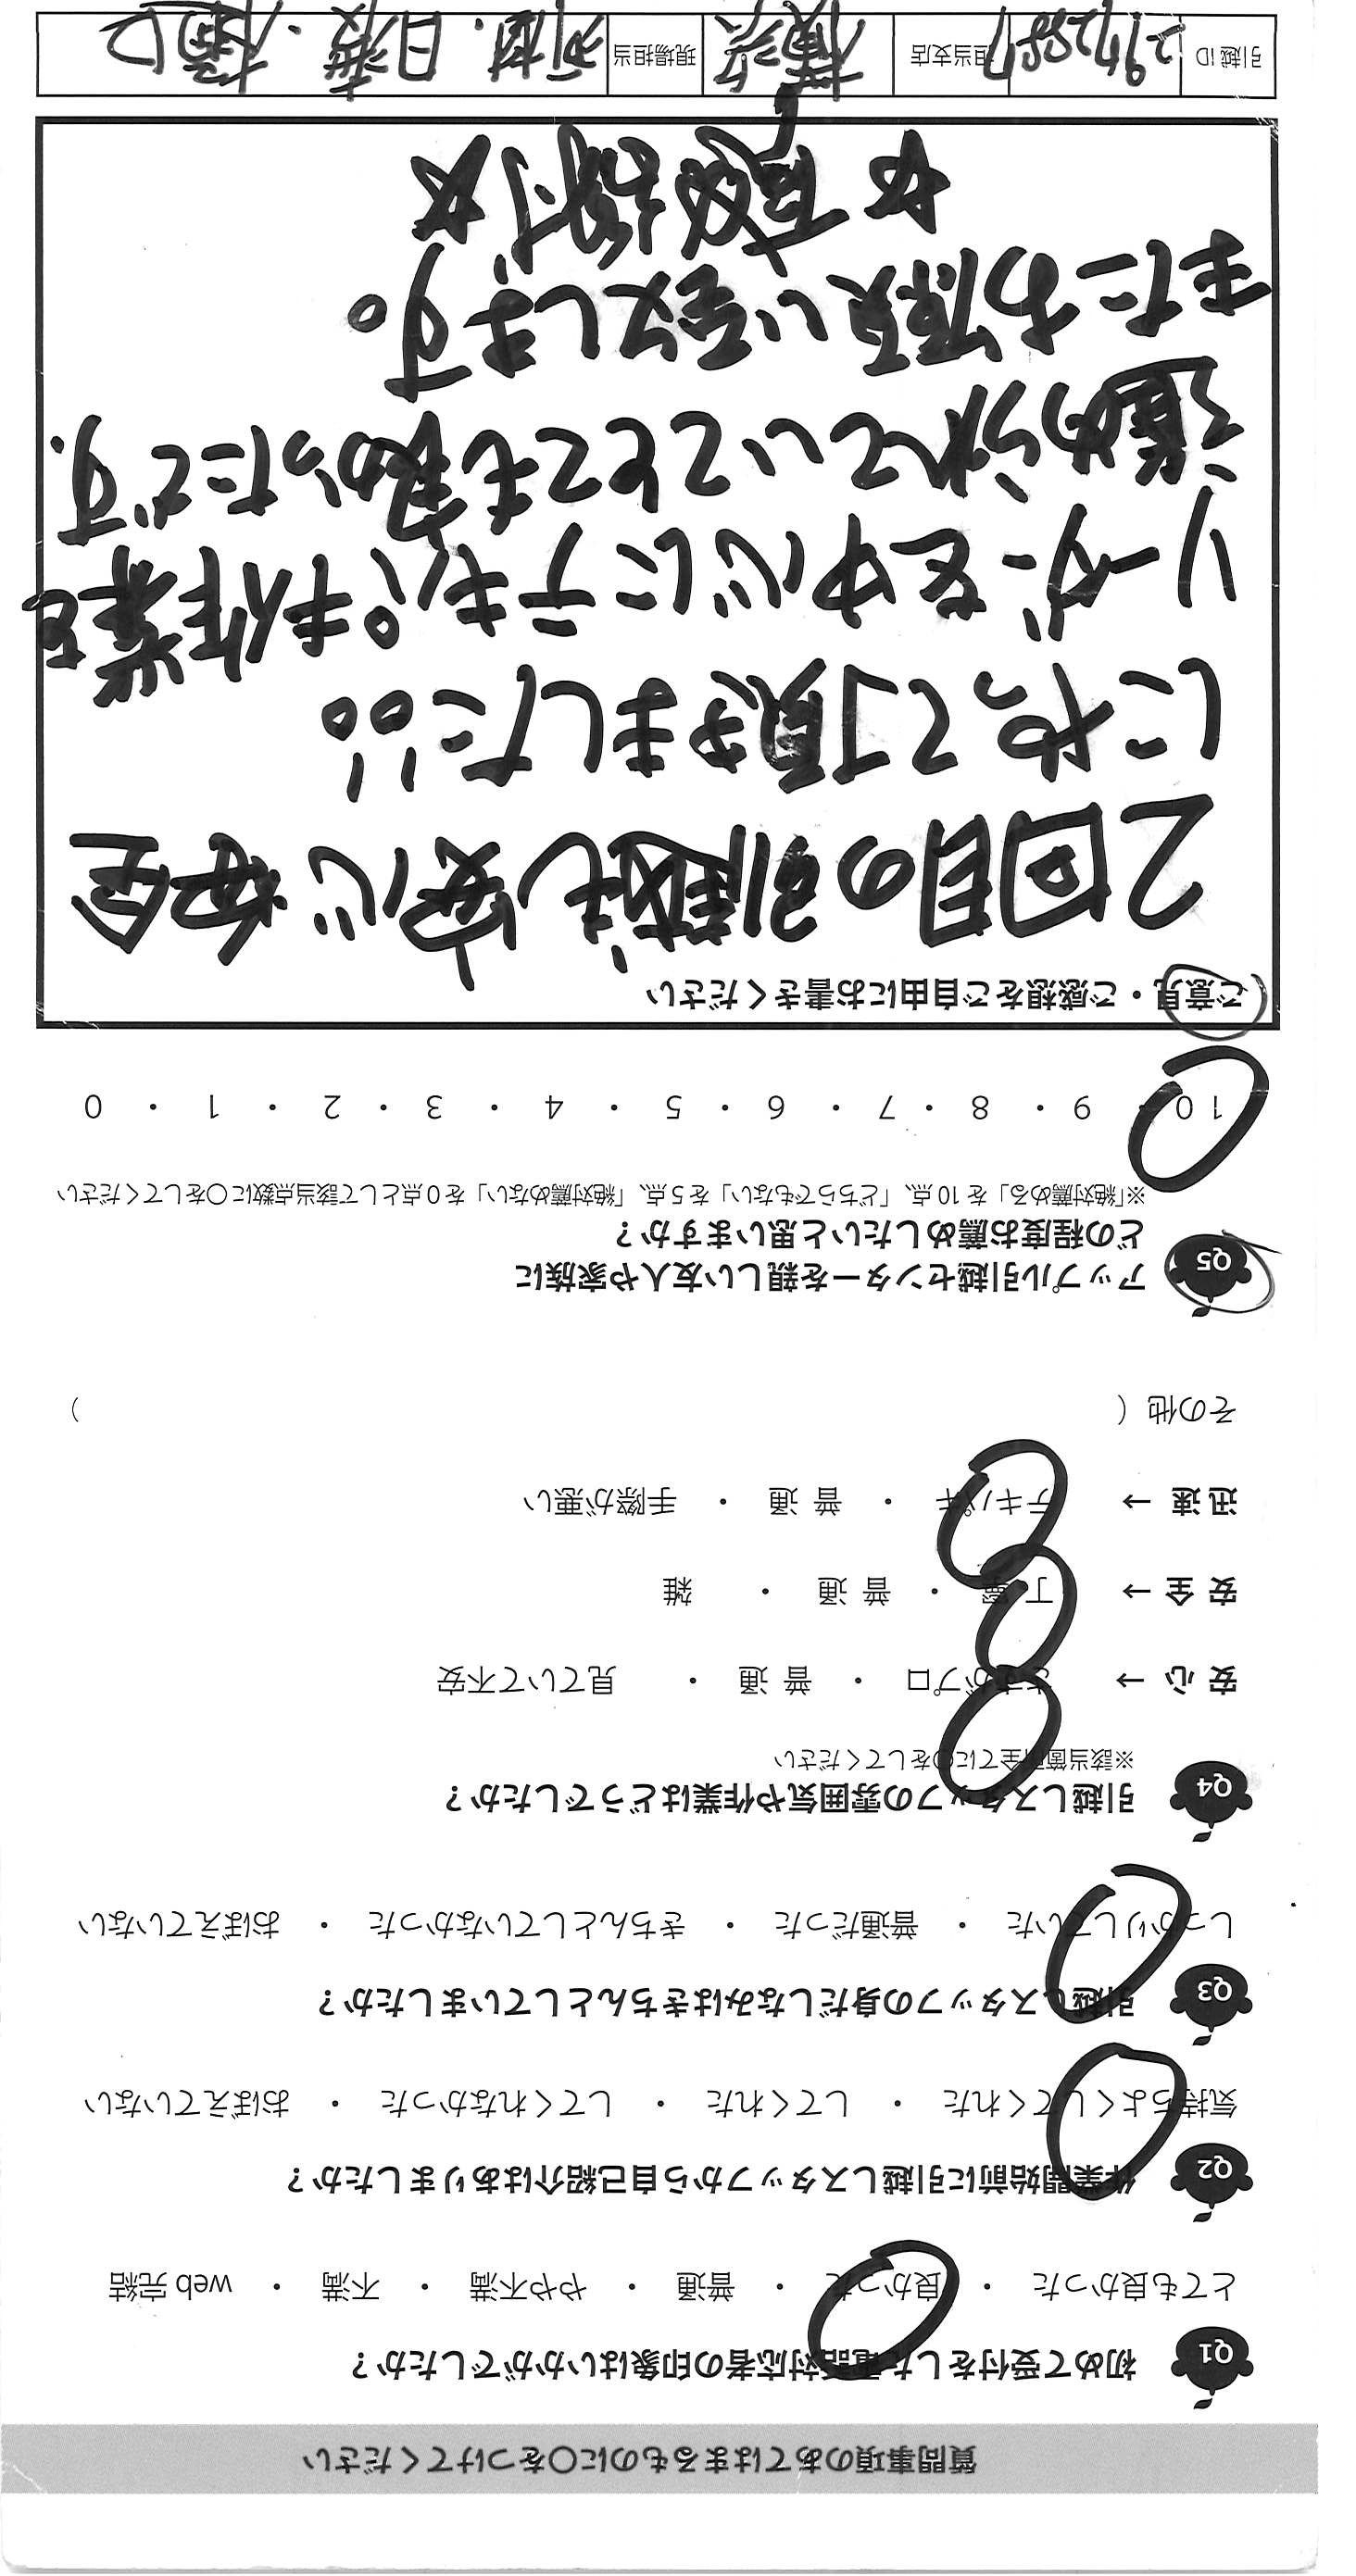 質問事項のあてはまるものに○をつけてください
Q1 初めて受付をした電話対応者の印象はいかがでしたか？
とても良かった ・ 良かった ・ 普通 ・ やや不満 ・ 不満 ・ web 完結
Q2 作業開始前に引越しスタッフから自己紹介はありましたか？
気持ちよくしてくれた ・ してくれた ・ してくれなかった ・ おぼえていない
Q3 引越しスタッフの身だしなみはきちんとしていましたか？
しっかりしていた ・ 普通だった ・ きちんとしていなかった ・ おぼえていない
Q4 引越しスタッフの雰囲気や作業はどうでしたか？
※該当箇所全てに○をしてください
安 心 → さすがプロ ・ 普 通 ・ 見ていて不安
安 全 → 丁 寧 ・ 普 通 ・ 雑
迅 速 → テキパキ ・ 普 通 ・ 手際が悪い
その他（ ）
Q5 アップル引越センターを親しい友人や家族に
どの程度お薦めしたいと思いますか？
※「絶対薦める」を 10 点、「どちらでもない」を 5 点、「絶対薦めない」を 0 点として該当点数に○をしてください
10 ・ 9 ・ 8 ・ 7 ・ 6 ・ 5 ・ 4 ・ 3 ・ 2 ・ 1 ・ 0
ご意見・ご感想をご自由にお書きください
2回目の引越も安心 安全
にやって頂きました!!
リーダーを中心にテキパキ作業を
進められていてとても良かったです.
またお願い致します。
☆高 ☆
引越 ID 2972887 担当支店 横浜 現場担当 日